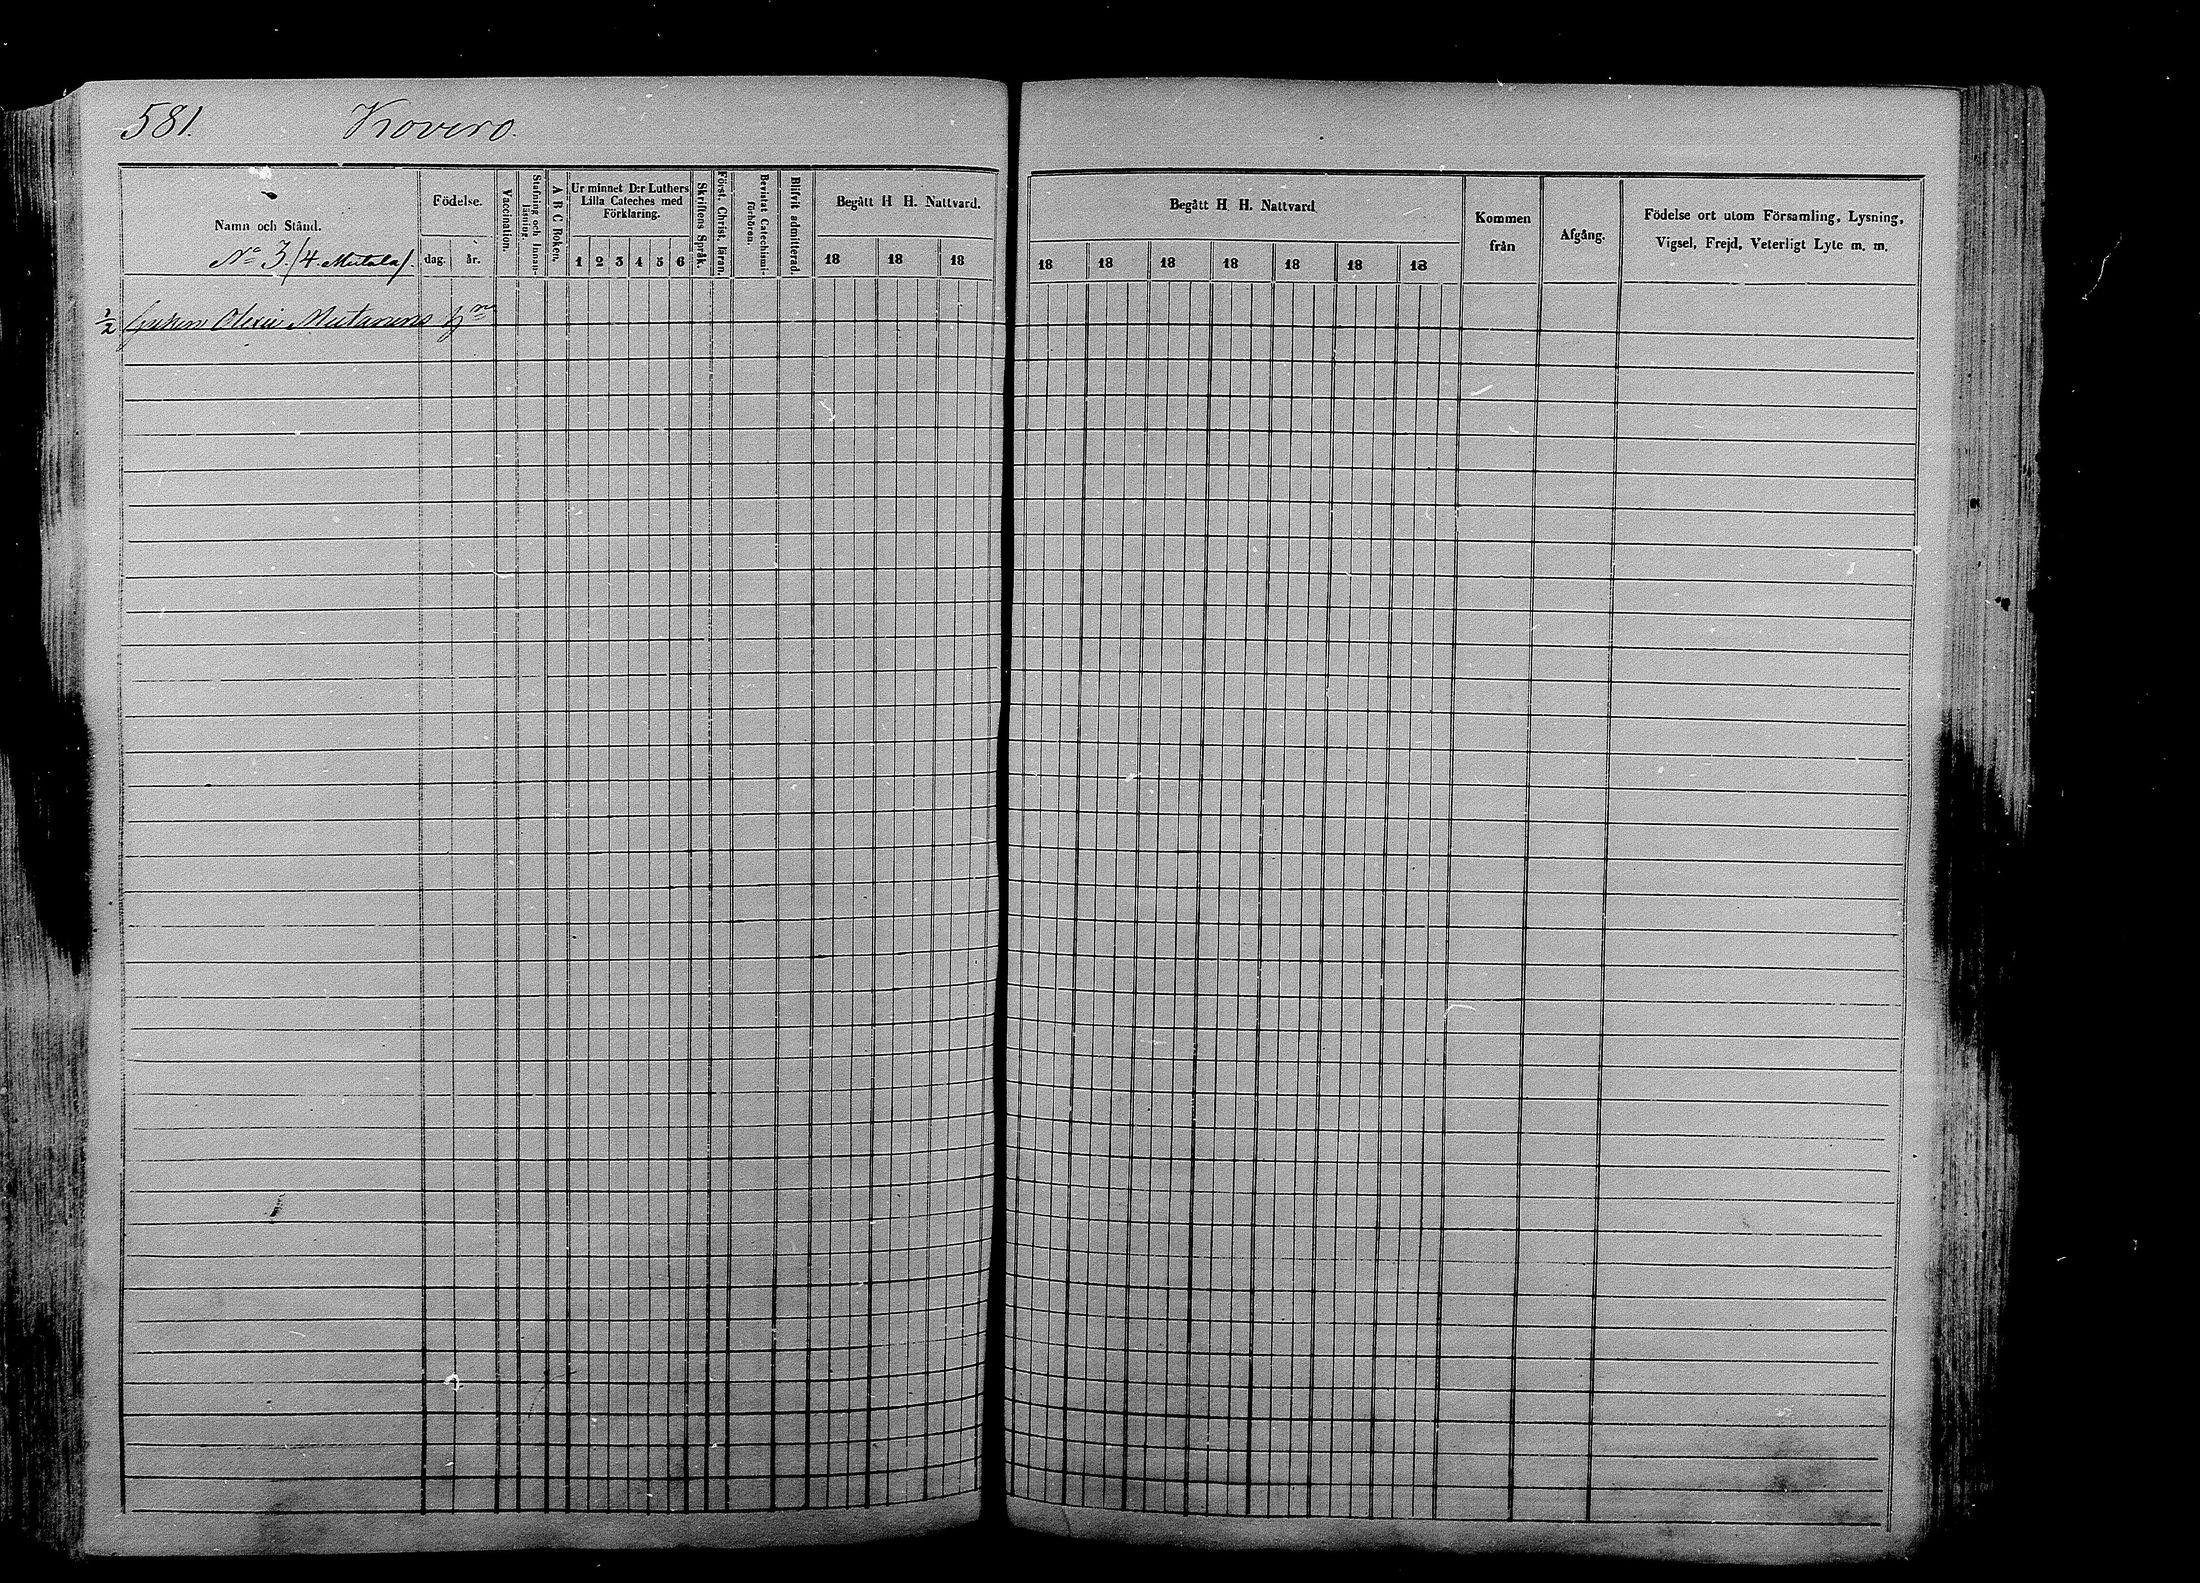 581. Kovero.
Namn och Stånd.
No 3. /4. Mutala/.
Födelse.
dag. år.
Vaccination.
Stafning och Innanläsning.
A B C Boken.
Ur minnet D:r Luthers Lilla Cateches med Förklaring.
1 2 3 4 5 6
Skriftens Språk.
Först. Christ. läran.
Bevistat Catechismi-förhören.
Blifvit admitterad.
Begått H H. Nattvard.
18 18 18
1/2 Olexei Mutanens
Begått H H. Nattvard
18 18 18 18 18 18 18
Kommen från
Afgång.
Födelse ort utom Församling, Lysning,
Vigsel, Frejd, Veterligt Lyte m. m.